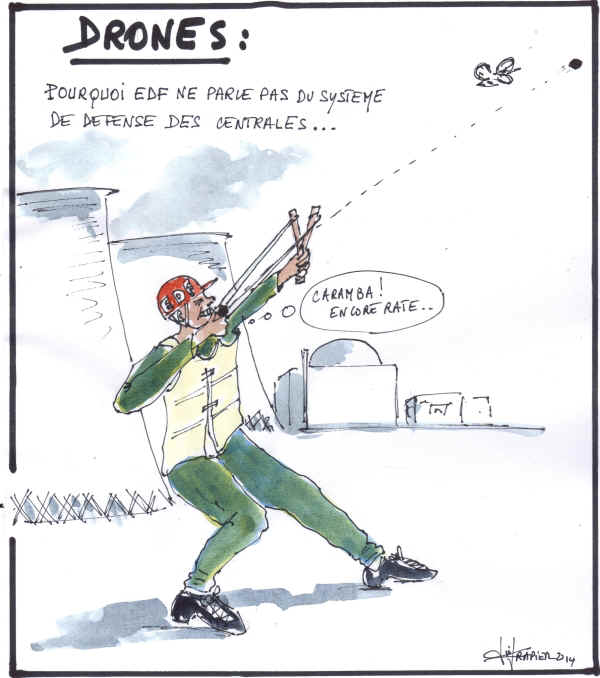 DRONES:
POURQUOI EDF NE PARLE PAS DU SYSTEME
DE DEFENSE DES CENTRALES...
EDF
CARAMBA!
ENCORE RATE..
FRAPIER 2014